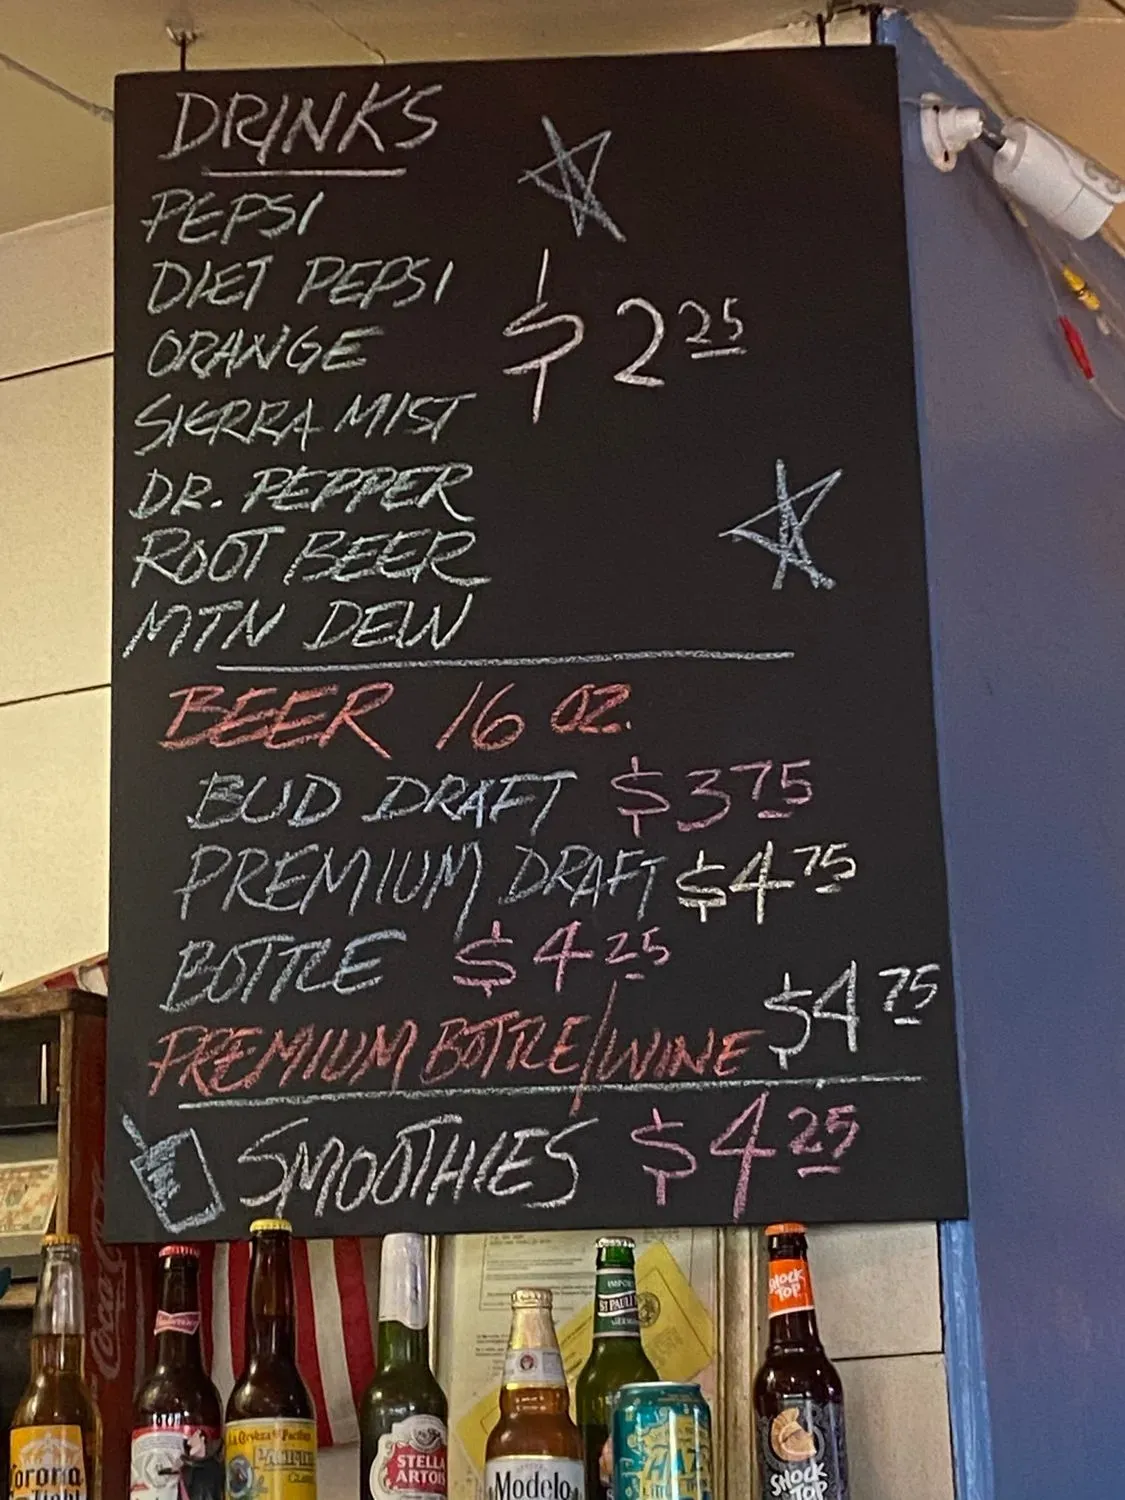 DRINKS
PEPSI
DIET PEPSI
ORANGE $2.25
SIERRA MIST
DR. PEPPER
ROOT BEER
MTN DEW
BEER 16 OZ.
BUD DRAFT $3.75
PREMIUM DRAFT $4.75
BOTTLE $4.25
PREMIUM BOTTLE/WINE $4.75
SMOOTHIES $4.25
Coca-Cola
SHOCK
TOP
ST PAULI
Corona
Light
La Cerveza del Pacífico
STELLA
ARTOIS
Modelo
SHOCK
TOP